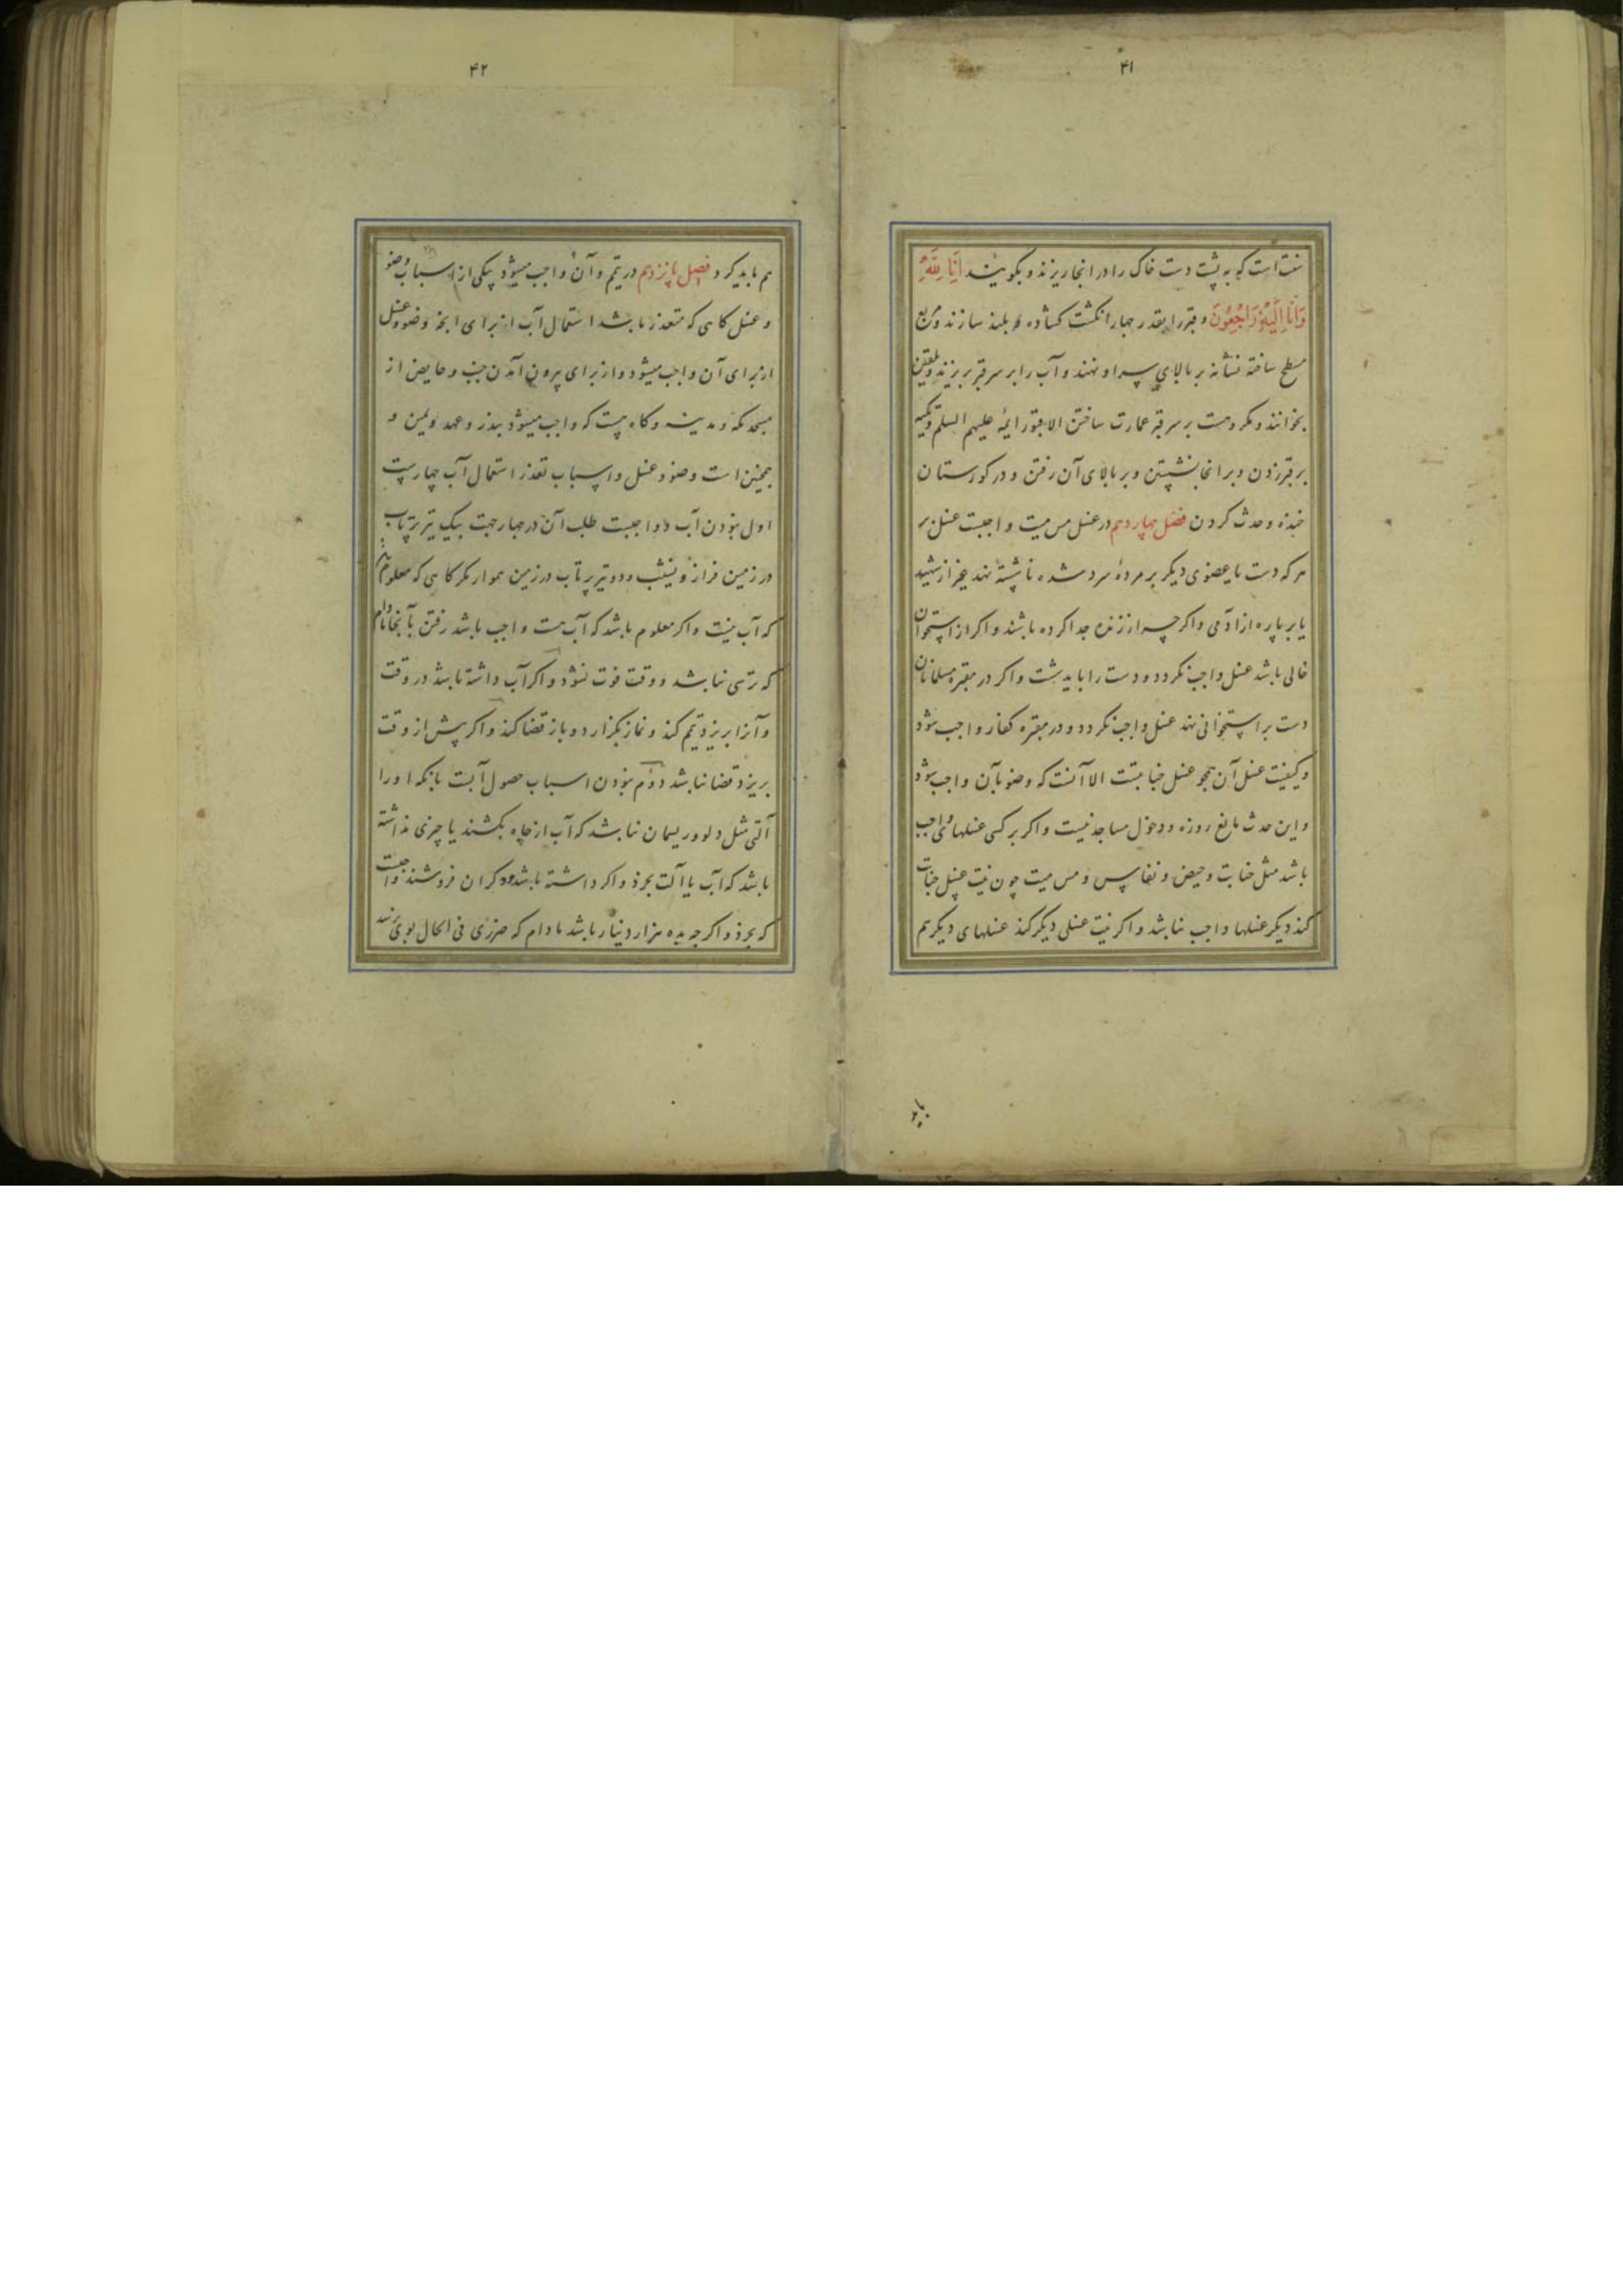 ۴۱
سنت است که به پشت دست خاک را در انجا ریزند و بگویند اِنّا لِلّهِ
وَاِنّا اِلَیْهِ رَاجِعُونَ و قبر را بقدر چهار انکشت کشاده بلند سازند و مربع
مسطح ساخته نشانه بر بالای سر او نهند و آب را بر سر قبر بریزند و تلقین
بخوانند و مکروهست بر سر قبر عمارت ساختن الا قبور ایمهٔ علیهم السلم و تکیه
بر قبر زدن و بر انجا نشستن و بر بالای آن رفتن و در کورستان
خنده و حدث کردن فصل چهاردهم در غسل مس میت واجبست غسل بر
هر که دست یا عضوی دیکر بر مردهٔ سرد شده ناشسته نهد غیر از شهید
یا بر پاره از ادمی و اکرچه از زنده جدا کرده باشند و اکر از استخوان
خالی باشد غسل واجب نکردد و دست را باید شست و اکر در مقبره مسلمانان
دست بر استخوانی نهد غسل واجب نکردد و در مقبره کفار واجب شود
و کیفیت غسل آن همچو غسل جنابتست الا آنست که وضو بآن واجب شود
و این حدث مانع روزه و دخول مساجد نیست و اکر بر کسی غسلهای واجب
باشد مثل جنابت و حیض و نفاس و مس میت چون نیت غسل جنابت
کند دیکر غسلها واجب نباشد و اکر نیت غسلی دیکر کند غسلهای دیکر هم
باید
۴۲
هم باید کرد فصل پانزدهم در تیمم و آن واجب میشود بیکی از اسباب وضو
و غسل کاهی که متعذر باشد استعمال آب از برای انچه وضو و غسل
از برای آن واجب میشود و از برای بیرون آمدن جنب و حایض از
مسجد مکه و مدینه و کاه هست که واجب میشود بنذر و عهد و یمین و
همچنین است وضو و غسل و اسباب تعذر استعمال آب چهارست
اول نبودن آب و واجبست طلب آن در چهار جهت بیک تیر پرتاب
در زمین فراز و نشیب و دو تیر پرتاب در زمین هموار مکر کاهی که معلوم باشد
که آب نیست و اکر معلوم باشد که آب هست واجب باشد رفتن بآنجا مادام
که ترسی نباشد و وقت فوت نشود و اکر آب داشته باشد در وقت
و آنرا بریزد تیمم کند و نماز بکزارد و باز قضا کند و اکر پیش از وقت
بریزد قضا نباشد دوم نبودن اسباب حصول آبست بانکه او را
آلتی مثل دلو و ریسمان نباشد که آب از چاه بکشند یا چیزی نداشته
باشد که آب یا آلت بخرد و اکر داشته باشد و کران فروشند واجبست
که بخرد و اکرچه بده هزار دینار باشد مادام که ضرری فی الحال بوی نرسد